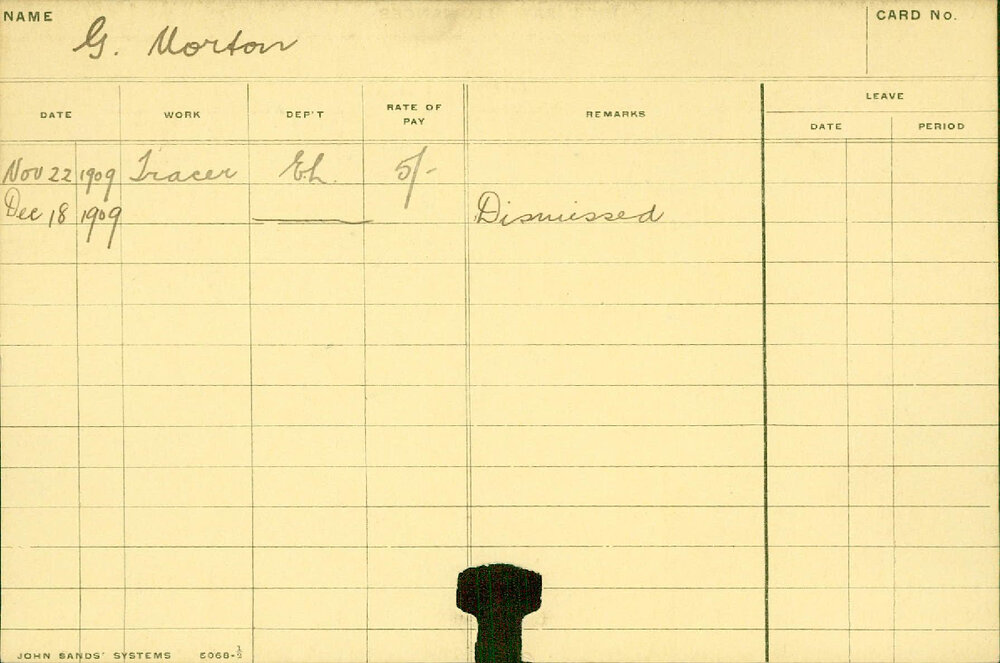 NAME
G. Morton
CARD No.
DATE WORK DEP'T RATE OF PAY REMARKS LEAVE
DATE PERIOD
Nov 22 1909 Tracer 5/-
Dec 18 1909 Dismissed
JOHN SANDS' SYSTEMS 5068-½